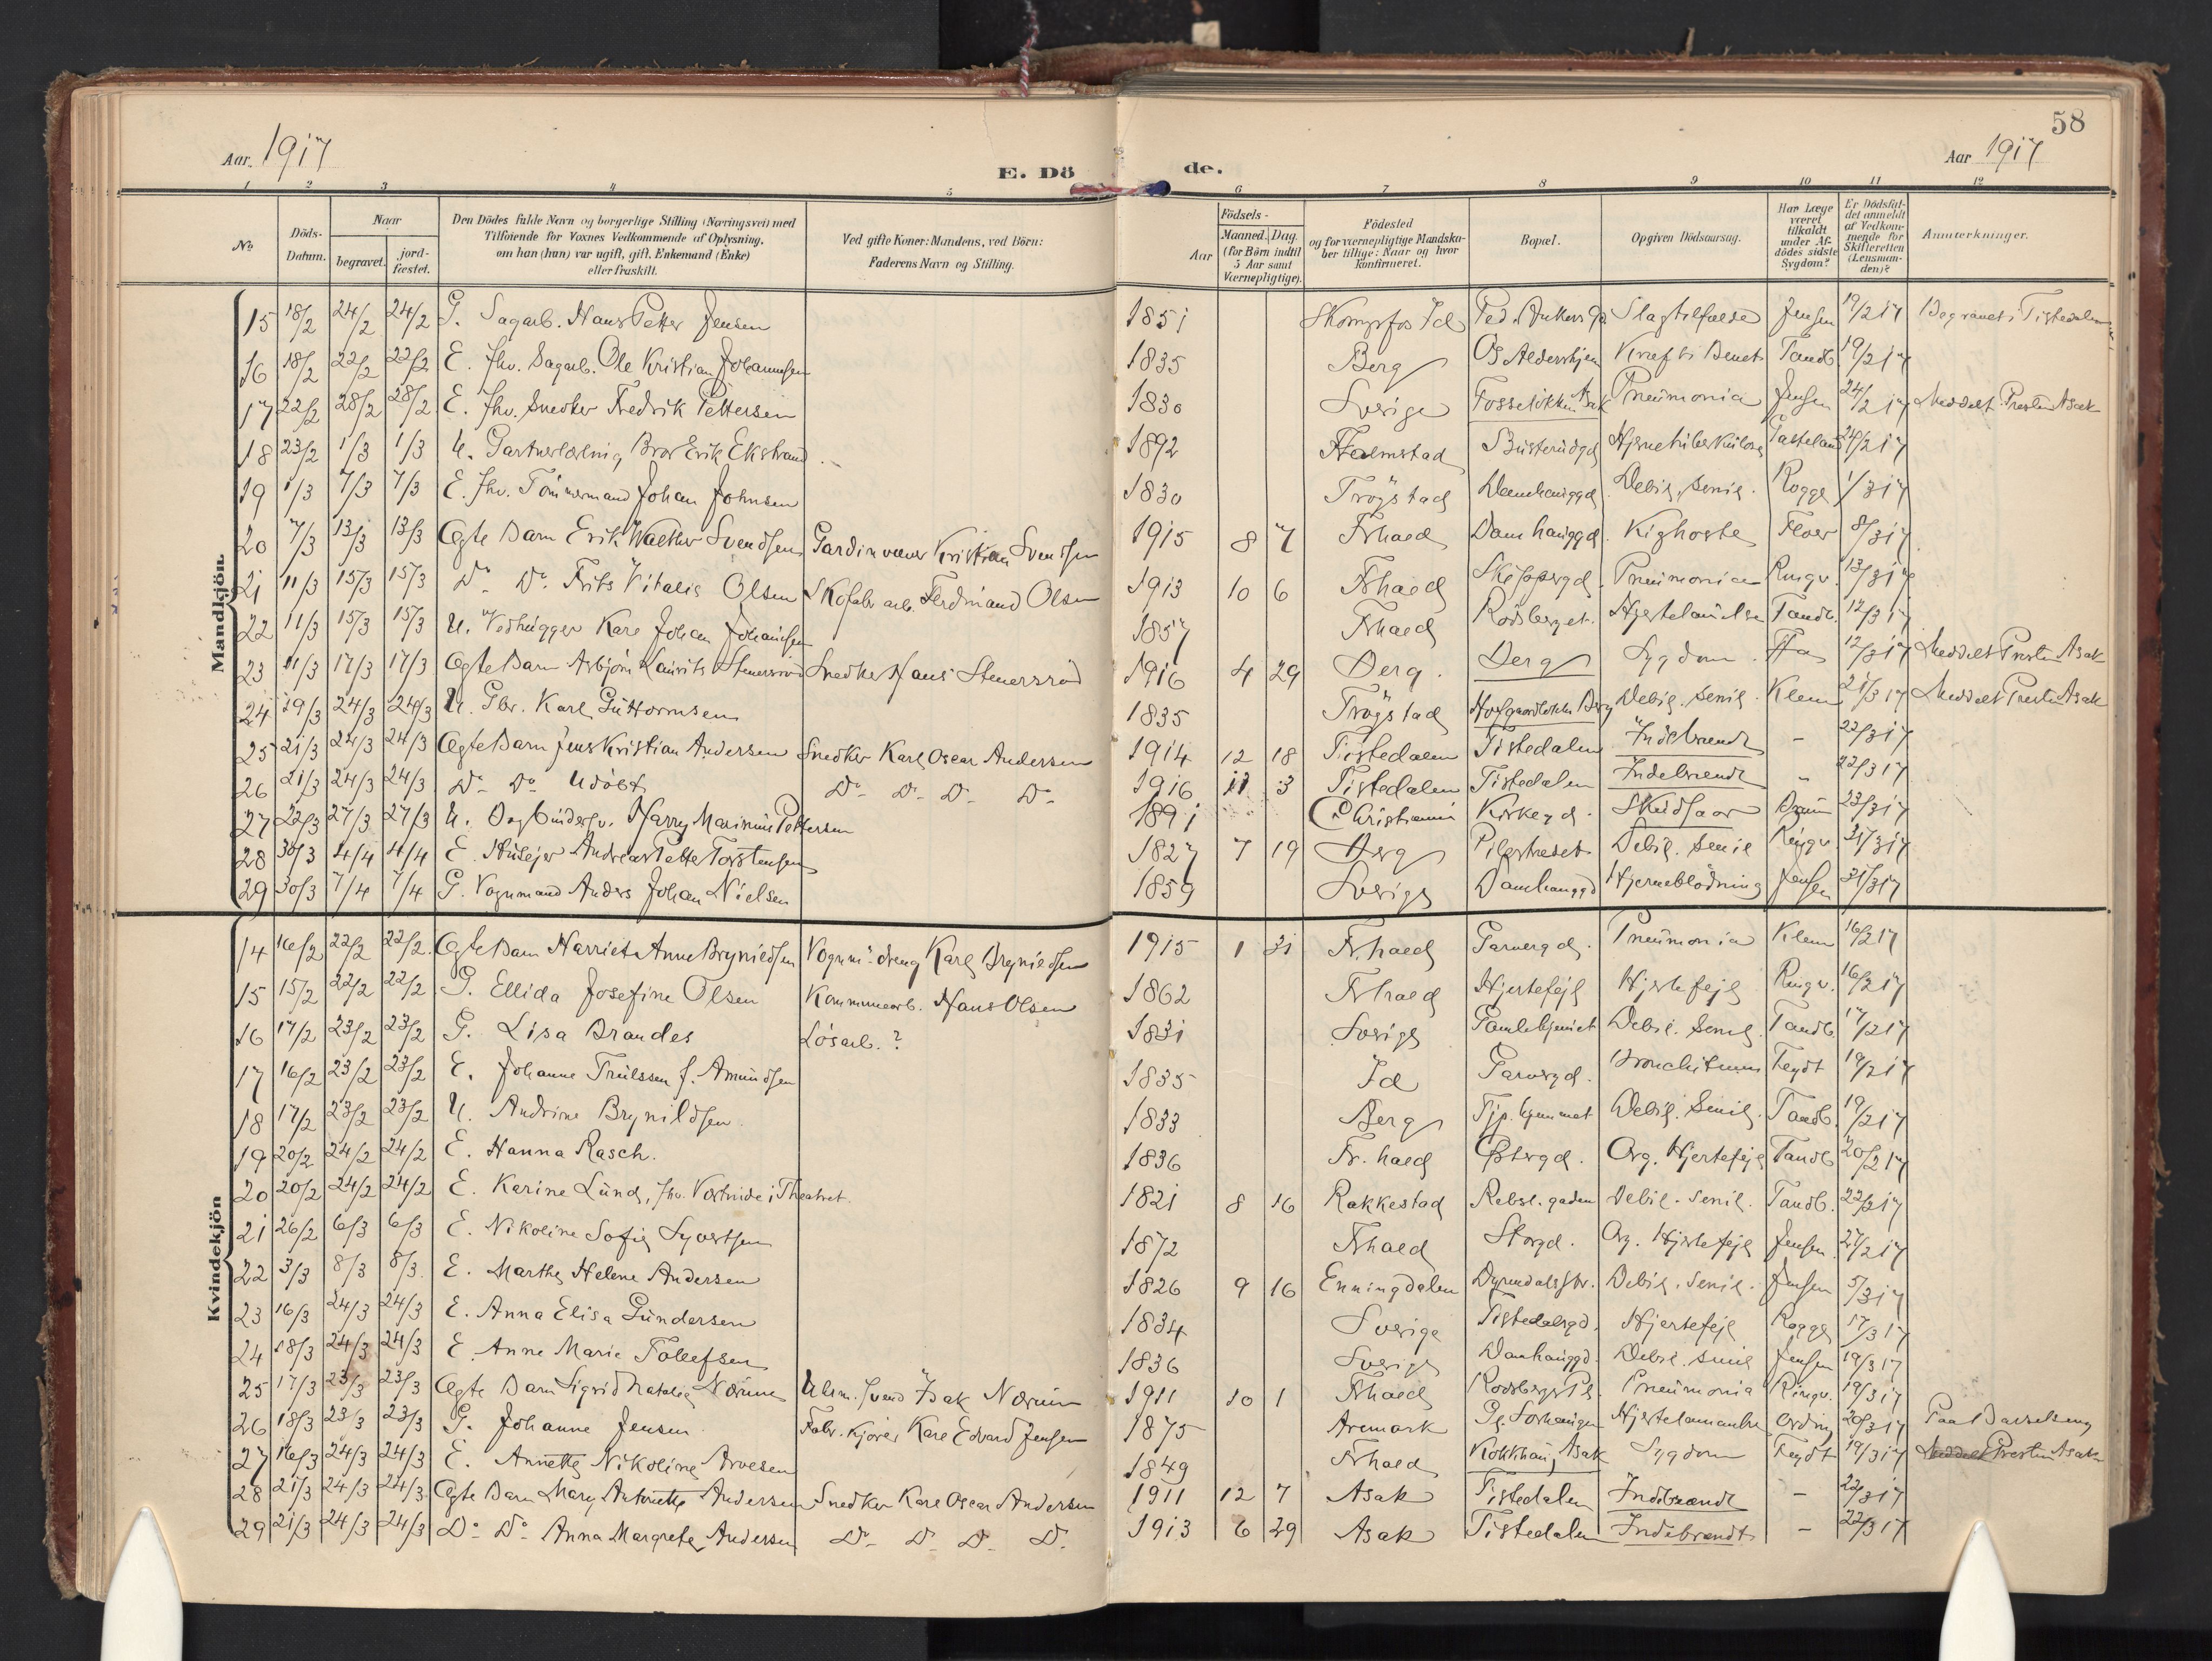 58
Aar. 1917 E. Dö de. Aar 1917
1 2 3 4 5 6 7 8 9 10 11 12
No
Döds-Datum.
Naar
begravet.
jord-fæstet.
Den Dödes fulde Navn og borgerlige Stilling (Næringsvei) med
Tilföiende for Voxnes Vedkommende af Oplysning,
om han (hun) var ugift, gift, Enkemand (Enke)
eller fraskilt.
Ved gifte Koner: Mandens, ved Börn:
Faderens Navn og Stilling.
Födsels-
Aar
Maaned. Dag.
(for Börn indtil
5 Aar samt
Værnepligtige).
Födested
og for værnepligtige Mandska-
ber tillige: Naar og hvor
konfirmeret.
Bopæl.
Opgiven Dödsaarsag.
Har Læge
været
tilkaldt
under Af-
dödes sidste
Sygdom?
Er Dödsfal-
det anmeldt
af Vedkom-
mende for
Skifteretten
(Lensman-
den)?
Anmerkninger.
Mandkjön.
15 18/2 24/2 24/2 G. Sagarb. Hans Petter Jensen 1851 Skonpsfos Id Slagtilfælde Jensen 19/2 17 Begravet i Tistedalen
16 18/2 22/2 22/2 E. fhv. Sagarb. Ole Kristian Johannesen 1835 Berg Kræft i Benet Tandb. 19/2 17
17 22/2 28/2 28/2 E. fhv. Snedker Fredrik Pettersen 1830 Sverige Fosseløkken Asak Pneumonia Jensen 24/2 17 Meddelt Presten Asak
18 23/2 1/3 1/3 U. Gartnerlærling Bror Erik Ekstrand 1892 Halmstad Busterudgd Hjernetuberkulose 24/2 17
19 1/3 7/3 7/3 E. fhv. Tömmermand Johan Johnsen 1830 Trögstad Damhauggd Debil. senil. Rogge 1/3 17
20 7/3 13/3 13/3 Ægte Barn Erik Walther Svendsen Gardinvæver Kristian Svendsen 1915 8 7 Frhald Damhauggd. Kighoste Floer 8/3 17
21 11/3 15/3 15/3 Do Do Frits Vitalis Olsen Skofabr arb. Ferdinand Olsen 1913 10 6 Frhald Skippergd. Pneumonia Ringv. 13/3 17
22 11/3 15/3 15/3 U. Vedhugger Karl Johan Johansen 1857 Frhald Rödsberget. Hjertelammelse Tandb. 12/3 17
23 11/3 17/3 17/3 Ægte Barn Asbjörn Laurits Stenersröd Snedker Hans Stenersröd 1916 4 29 Berg. Berg Sygdom. 12/3 17 Meddelt Presten Asak
24 19/3 24/3 24/3 U. Gbr. Karl Guttormsen 1835 Trögstad Debil. senil. Klem 21/3 17 Meddelt Presten Asak
25 21/3 24/3 24/3 Ægte Barn Jens Kristian Andersen Snedker Karl Oscar Andersen 1914 12 18 Tistedalen Tistedalen Indebrændt - 22/3 17
26 21/3 24/3 24/3 Do Do Udöbt Do D. D. D. 1916 11 3 Tistedalen Tistedalen Indebrændt - 22/3 17
27 22/3 27/3 27/3 U. Bogbindersv. Harry Marinius Pettersen 1891 Christiania Kirkegd. Skudsaar 23/3 17
28 30/3 4/4 4/4 E. Husejer Andreas Petter Torstensen 1827 7 19 Berg Pilestredet Debil. senil Ringv. 31/3 17
29 30/3 7/4 7/4 G. Vognmand Anders Johan Nielsen 1859 Sverige Damhauggd Hjerneblödning Jensen 31/3 17
Kvindekjön
14 16/2 22/2 22/2. Ægte Barn Harriet Anne Brynildsen Vognm.-dreng Karl Brynildsen 1915 1 31 Fr.hald Garvergd. Pneumonia Klem 16/2 17
15 15/2 22/2 22/2 G. Ellida Josefine Olsen Kommunearb. Hans Olsen 1862 Frhald Hjertefejl Hjertefejl Ringv. 16/2 17
16 17/2 23/2 23/2 G. Lisa Brandes Lösarb. ? 1831 Sverige Gamlehjemmet Debil. Senil. Tandb. 17/2 17
17 16/2 23/2 23/2 E. Johanne Trulssen f. Amundsen 1835 Id Garvergd. Feydt 19/2 17
18 17/2 23/2 23/2 U. Andrine Brynildsen. 1833 Berg Debil. Senil. Tandb. 19/2 17
19 20/2 24/2 24/2 E. Hanna Rasch. 1836 Fr.hald Östergd. Org. Hjertefejl Tandb 20/2 17
20 20/2 24/2 24/2 E. Karine Lund, fhv. i Theatret. 1821 8 16 Rakkestad Rebsl.gaden Debil. senil. Tandb. 22/2 17
21 26/2 6/3 6/3 E. Nikoline Sofie Syvertsen 1872 Frhald Storgd. Org. Hjertefejl Jensen. 27/2 17
22 3/3 8/3 8/3. E. Marthe Helene Andersen 1826 9 16 Enningdalen Debil. senil. Jensen 5/3 17
23 16/3 24/3 24/3 E. Anna Elisa Gundersen 1834 Sverige Tistedalsgd. Hjertefejl Rogge 17/3 17
24 18/3 24/3 24/3 E. Anne Marie Tollefsen 1836 Sverige Damhauggd. Debil. senil Jensen 19/3 17
25 17/3 23/3 23/3 Ægte Barn Sigrid Natalie Nærum Isak Nærum 1911 10 1 Frhald Rödsberget Pneumonia Ringv. 19/3 17
26 18/3 23/3 23/3 G. Johanne Jensen. Fabr. kjører Karl Edvard Jensen 1875 Aremark Ording 20/3 17 Paa Barselseng
27 16/3 24/3 24/3 E. Annette Nikoline Arvesen 1849 Frhald Asak Sygdom Feydt 19/3 17 Meddelt Presten Asak
28 21/3 24/3 24/3. Ægte Barn Mary Antonette Andersen Snedker Karl Oscar Andersen 1911 12 7 Asak Tistedalen Indebrændt - 22/3 17
29 21/3 24/3 24/3 Do Do Anna Margrete Andersen D. D. D. D. 1913 6 29 Asak Tistedalen Indebrændt - 22/3 17